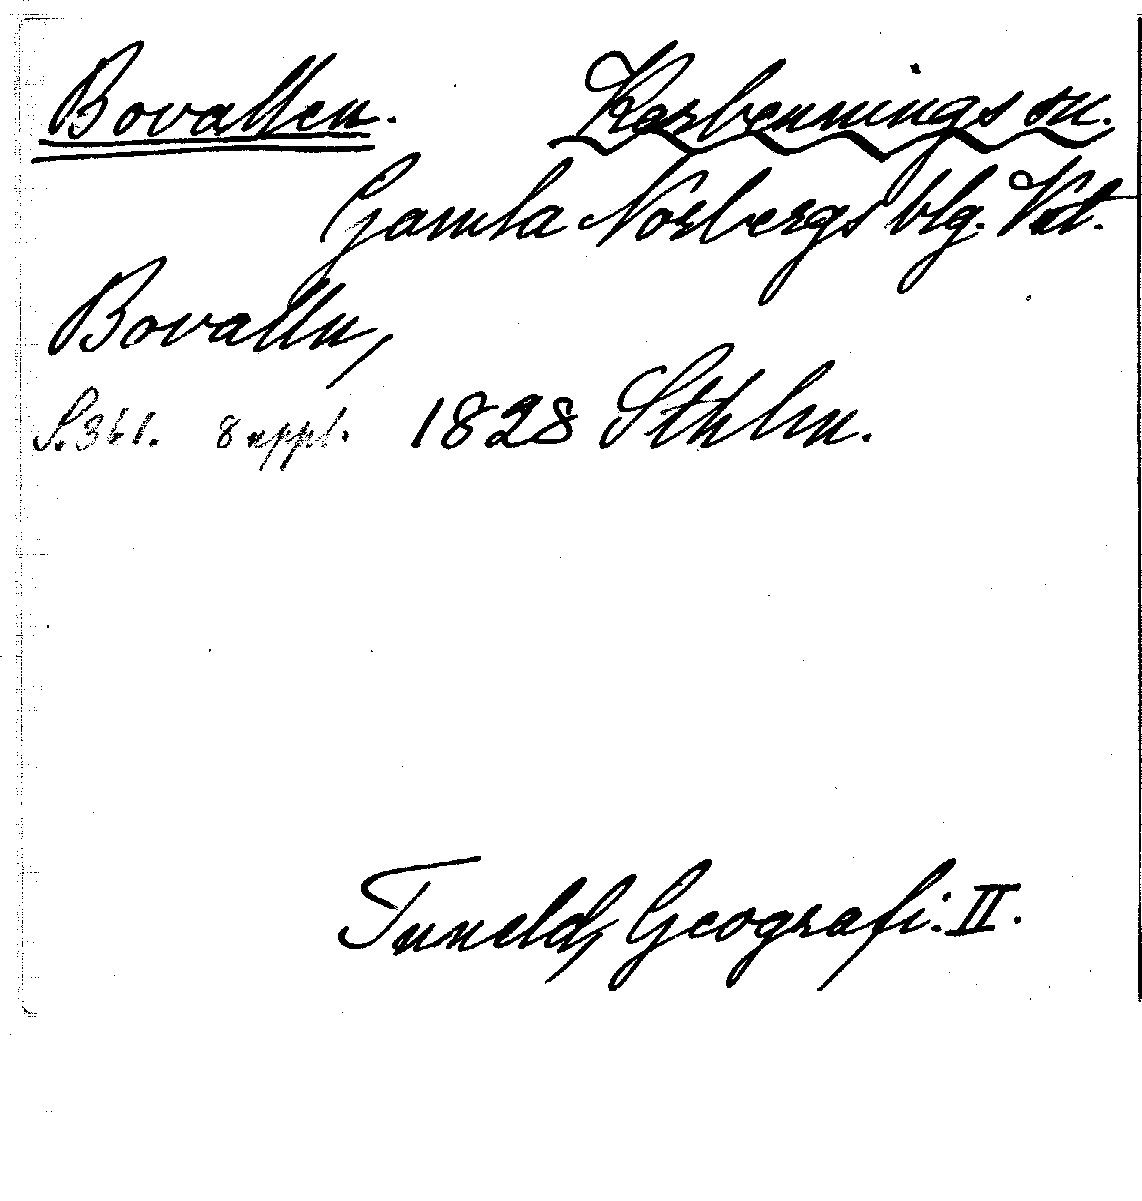 Bovallen. Karbennings sn.
Gamla Norbergs blg. Vstm.
Bovalln,
S. 361. 8 uppl. 1828 Sthlm.
Tuneld, Geografi. II.